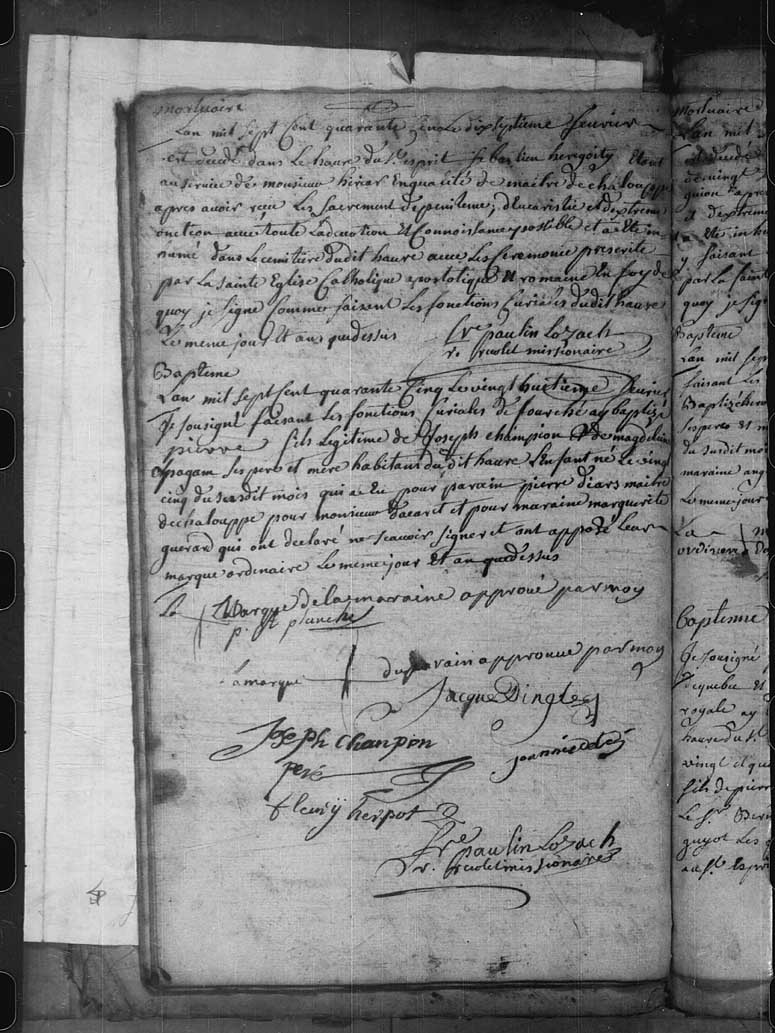 mortuaire
Lan mil sept Cent quarante Cinq Le dixseptieme feuvrier
est decedé dans Le haure du St. esprit Sebastien heregoity Etant
au seruice de monsieur hiriar En qualité de maitre de chalouppe
apres auoir reçu Les sacrement de penitence, d'Eucaristie et d'extreme
onction auec toute La deuotion Et Connoissance possible et a Eté in
humé dans Le cimitiere dudit haure auec Les Ceremonie prescrite
par La sainte Eglise Catholique apostolique et romaine En foy de
quoy je signe Comme faisant Les fonctions Curiales dudit haure
Le meme jour Et an que dessus
fre paulin Lozach
r. recolet missionaire
Bapteme
Lan mil sept Cent quarante Cinq Le vingt huitieme feuvrier
Je sousigné faisant Les fonctions Curiales de fourché ay baptizé
pierre fils Legitime de Joseph champion Et de magdelaine
pagam ses pere et mere habitans du dit haure L'Enfant né Le vingt
cinq du susdit mois qui a Eu pour parain pierre diars maitre
de chalouppe pour monsieur dacaret et pour maraine marguerite
guerard qui ont declaré ne scauoir signer et ont apposé Leur
marque ordinaire Le meme jour Et an que dessus
La Marque de La maraine approué par moy
p. planche
La marque du parain approuue par moy
Jacque Dingle
Joseph chanpion
peré
fleury herpot
fre paulin Lozach
r. recolet missionaire
mortuaire
Lan mil
est decedé
de vingt
et d'extreme
a Eté inh
y faisant
par La saint
quoy je sig
Bapteme
Lan mil sep
faisant Les
Baptizé
ses pere et m
du susdit moi
maraine
Le meme jour
La m
ordinaire
Baptesme
Je sousigné
de quebec et
royale ay
haure du St.
vingt
fils de pierr
Le Sr.
guyot Les
au St. Espri